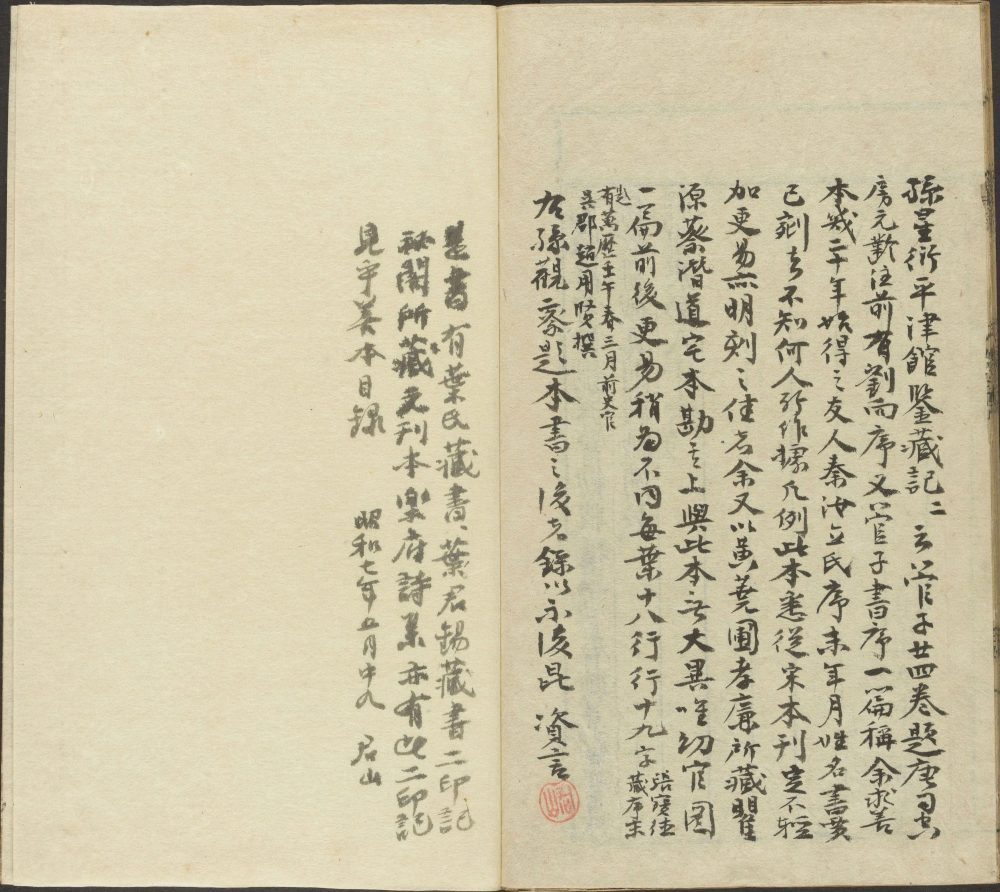 孫星衍平津館鑒藏記二云管子廿四卷題唐司空
房玄齡注前有劉向序又管子書序一篇稱余求善
本幾二十年始得之友人秦汝立氏序末年月姓名書賈
已剜去不知何人所作據凡例此本悉從宋本刊定不輕
加更易亦明刻之佳者余又以黃蕘圃孝廉所藏瞿
源蔡潛道宅本勘之上與此本無大異唯幼官圖
二篇前後更易稍為不同每葉十八行行十九字
張定徒
藏本末
有萬歷壬午春三月前史官
吳郡趙用賢撰
右孫觀察題本書之後者錄以示後昆 資言
是書有葉氏藏書、葉君錫藏書二印記
秘閣所藏元刊本樂府詩集亦有此二印記
見宇善本目錄
昭和七年五月中九 君山